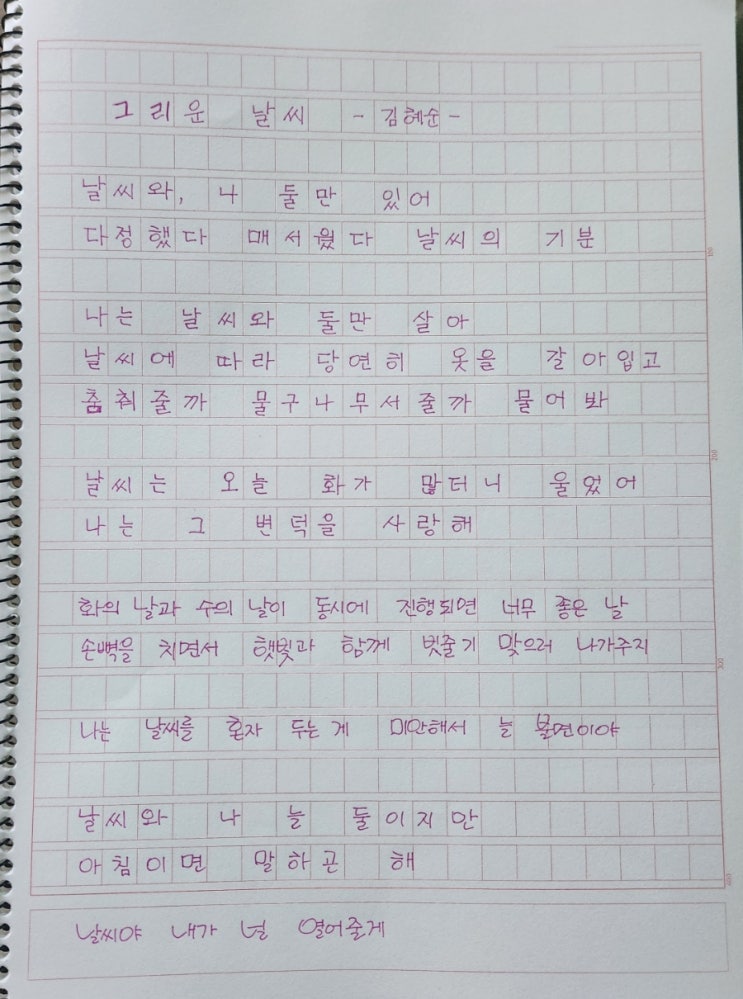 그리운 날씨 - 김혜순 -
날씨와, 나 둘만 있어
다정했다 매서웠다 날씨의 기분
나는 날씨와 둘만 살아
날씨에 따라 당연히 옷을 갈아입고
춤춰줄까 물구나무서줄까 물어봐
날씨는 오늘 화가 많더니 울었어
나는 그 변덕을 사랑해
화의 날과 수의 날이 동시에 진행되면 너무 좋은 날
손뼉을 치면서 햇빛과 함께 빗줄기 맞으러 나가주지
나는 날씨를 혼자 두는 게 미안해서 늘 불면이야
날씨와 나 늘 둘이지만
아침이면 말하곤 해
날씨야 내가 널 열어줄게
100
200
300